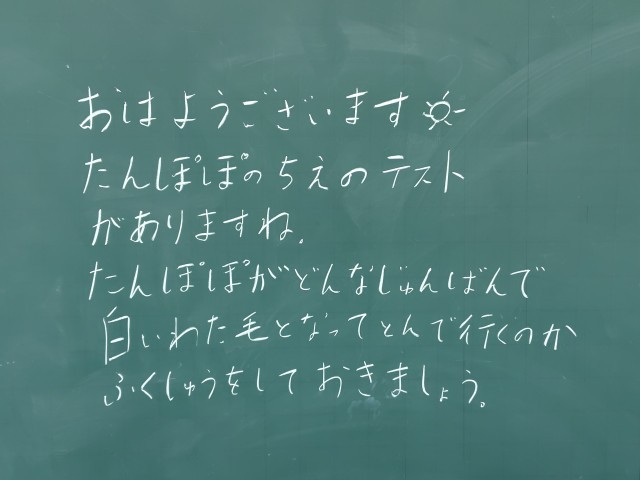 おはようございます
たんぽぽのちえのテスト
がありますね.
たんぽぽがどんなじゅんばんで
白いわた毛となってとんで行くのか
ふくしゅうをしておきましょう。